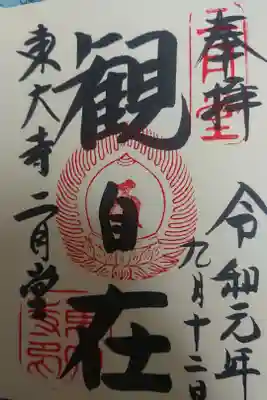 奉拝
令和元年
九月十二日
観自在
東大寺二月堂
二月堂